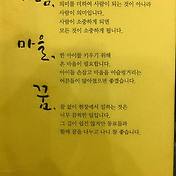 의미를 더하여 사람이 되는 것이 아니라
사람이 의미입니다.
사람이 소중하게 되면
모든 것이 소중하게 됩니다.
마을,
한 아이를 키우기 위해
온 마을이 필요합니다.
아이들 손잡고 마을을 어슬렁거리는
어른들이 많아졌으면 좋겠습니다.
꿈,
꿈 없이 현장에서 일하는 것은
너무 강력한 일입니다.
그 길이 쉽진 않지만 동료들과
함께 꿈을 나누고 나니 참 좋습니다.